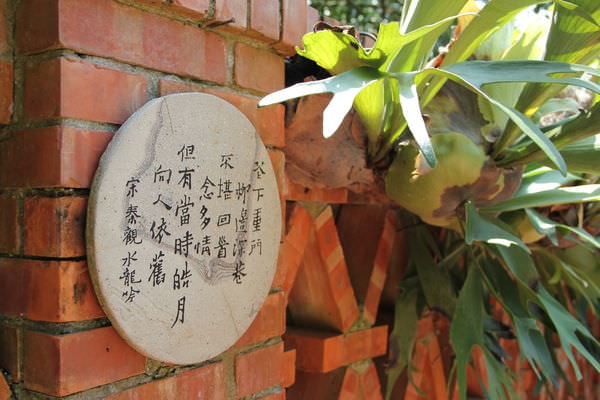 花下重門
柳邊深巷
不堪回首
念多情
但有當時皓月
向人依舊
宋秦觀水龍吟